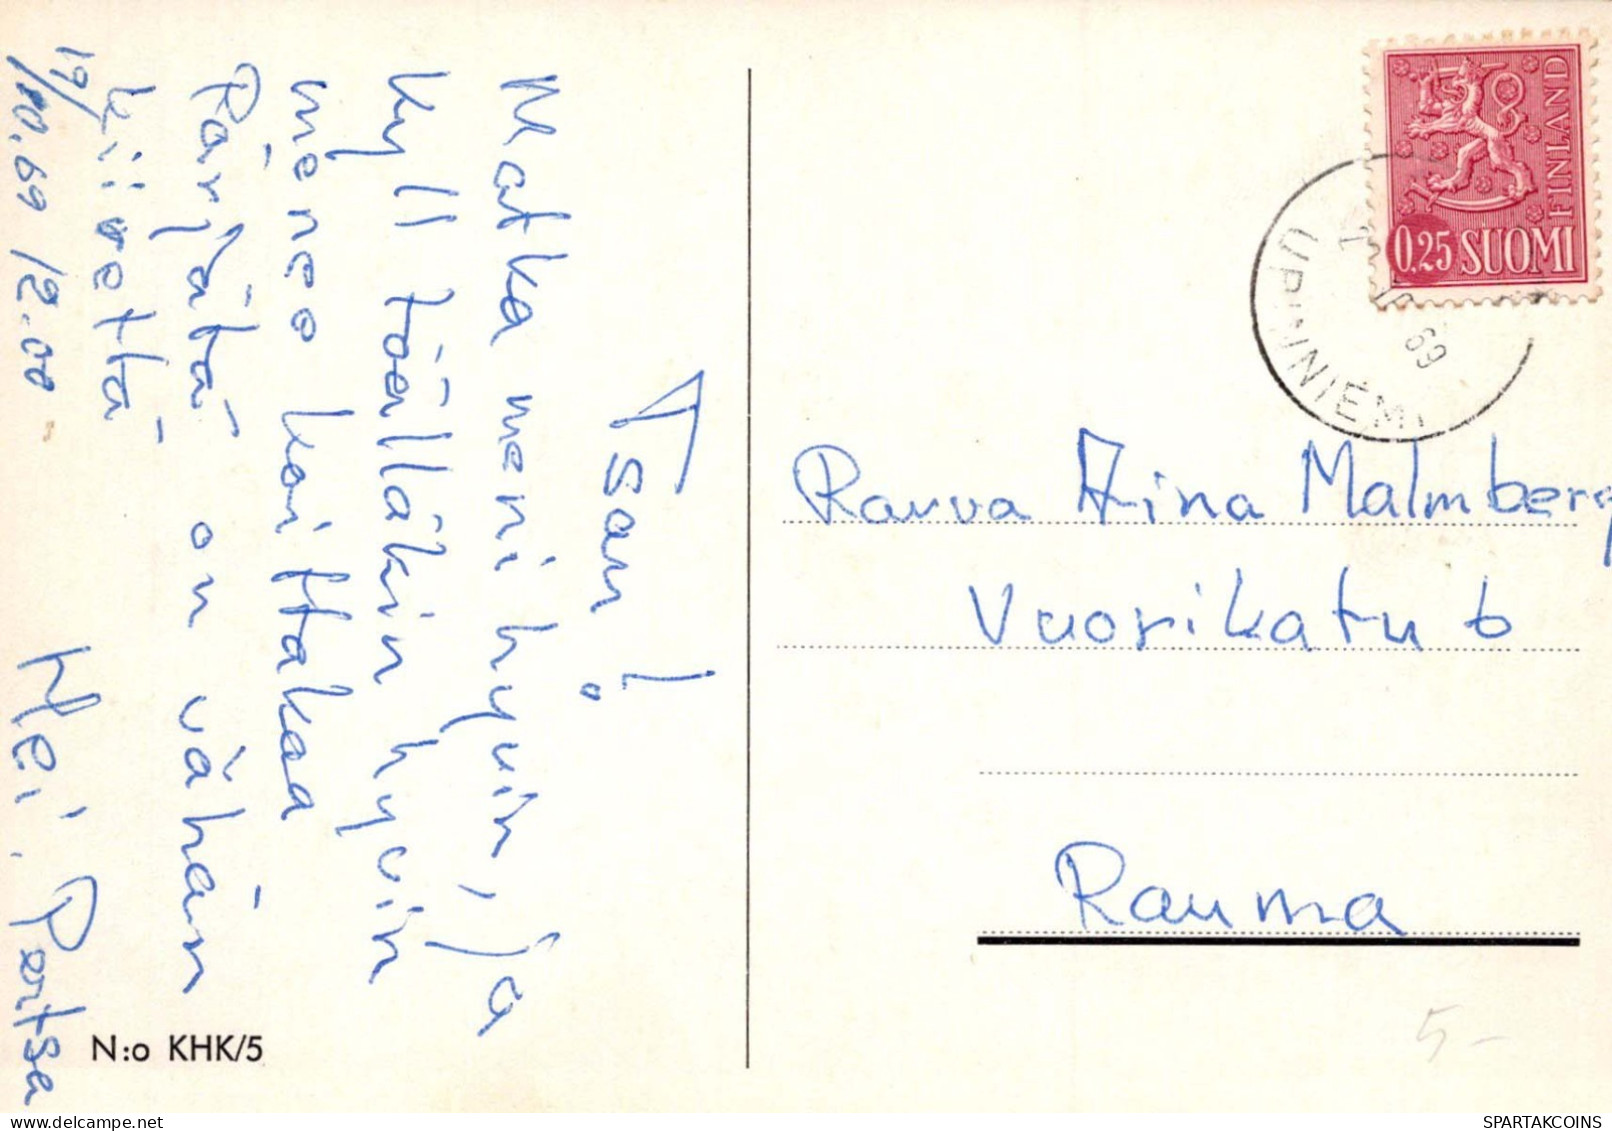 Tsau!
Matka meni hyvin, ja
kyll täälläkin hyvin
menee
Pärjätä on vähän
kiirettä
19/10.69 12.00
Hei! Pertsa
N:o KHK/5
FINLAND
0,25 SUOMI
UPINNIEMI
69
Rouva Aina Malmberg
Vuorikatu 6
Rauma
5-
SPARTAKCOINS